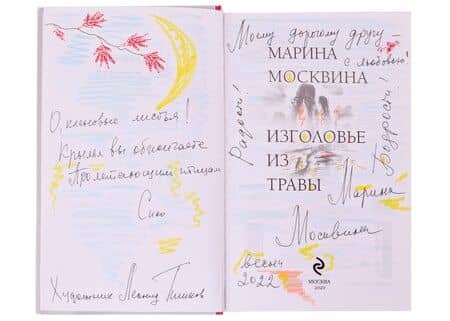 О, кленовые листья!
Крылья вы обжигаете
Пролетающим птицам
Сико
Художник Леонид Тишков
Моему дорогому другу –
с любовью!
МАРИНА
МОСКВИНА
Радости!
Бодрости!
ИЗГОЛОВЬЕ
ИЗ
ТРАВЫ
Марина
Москвина
весна
2022
МОСКВА
2022